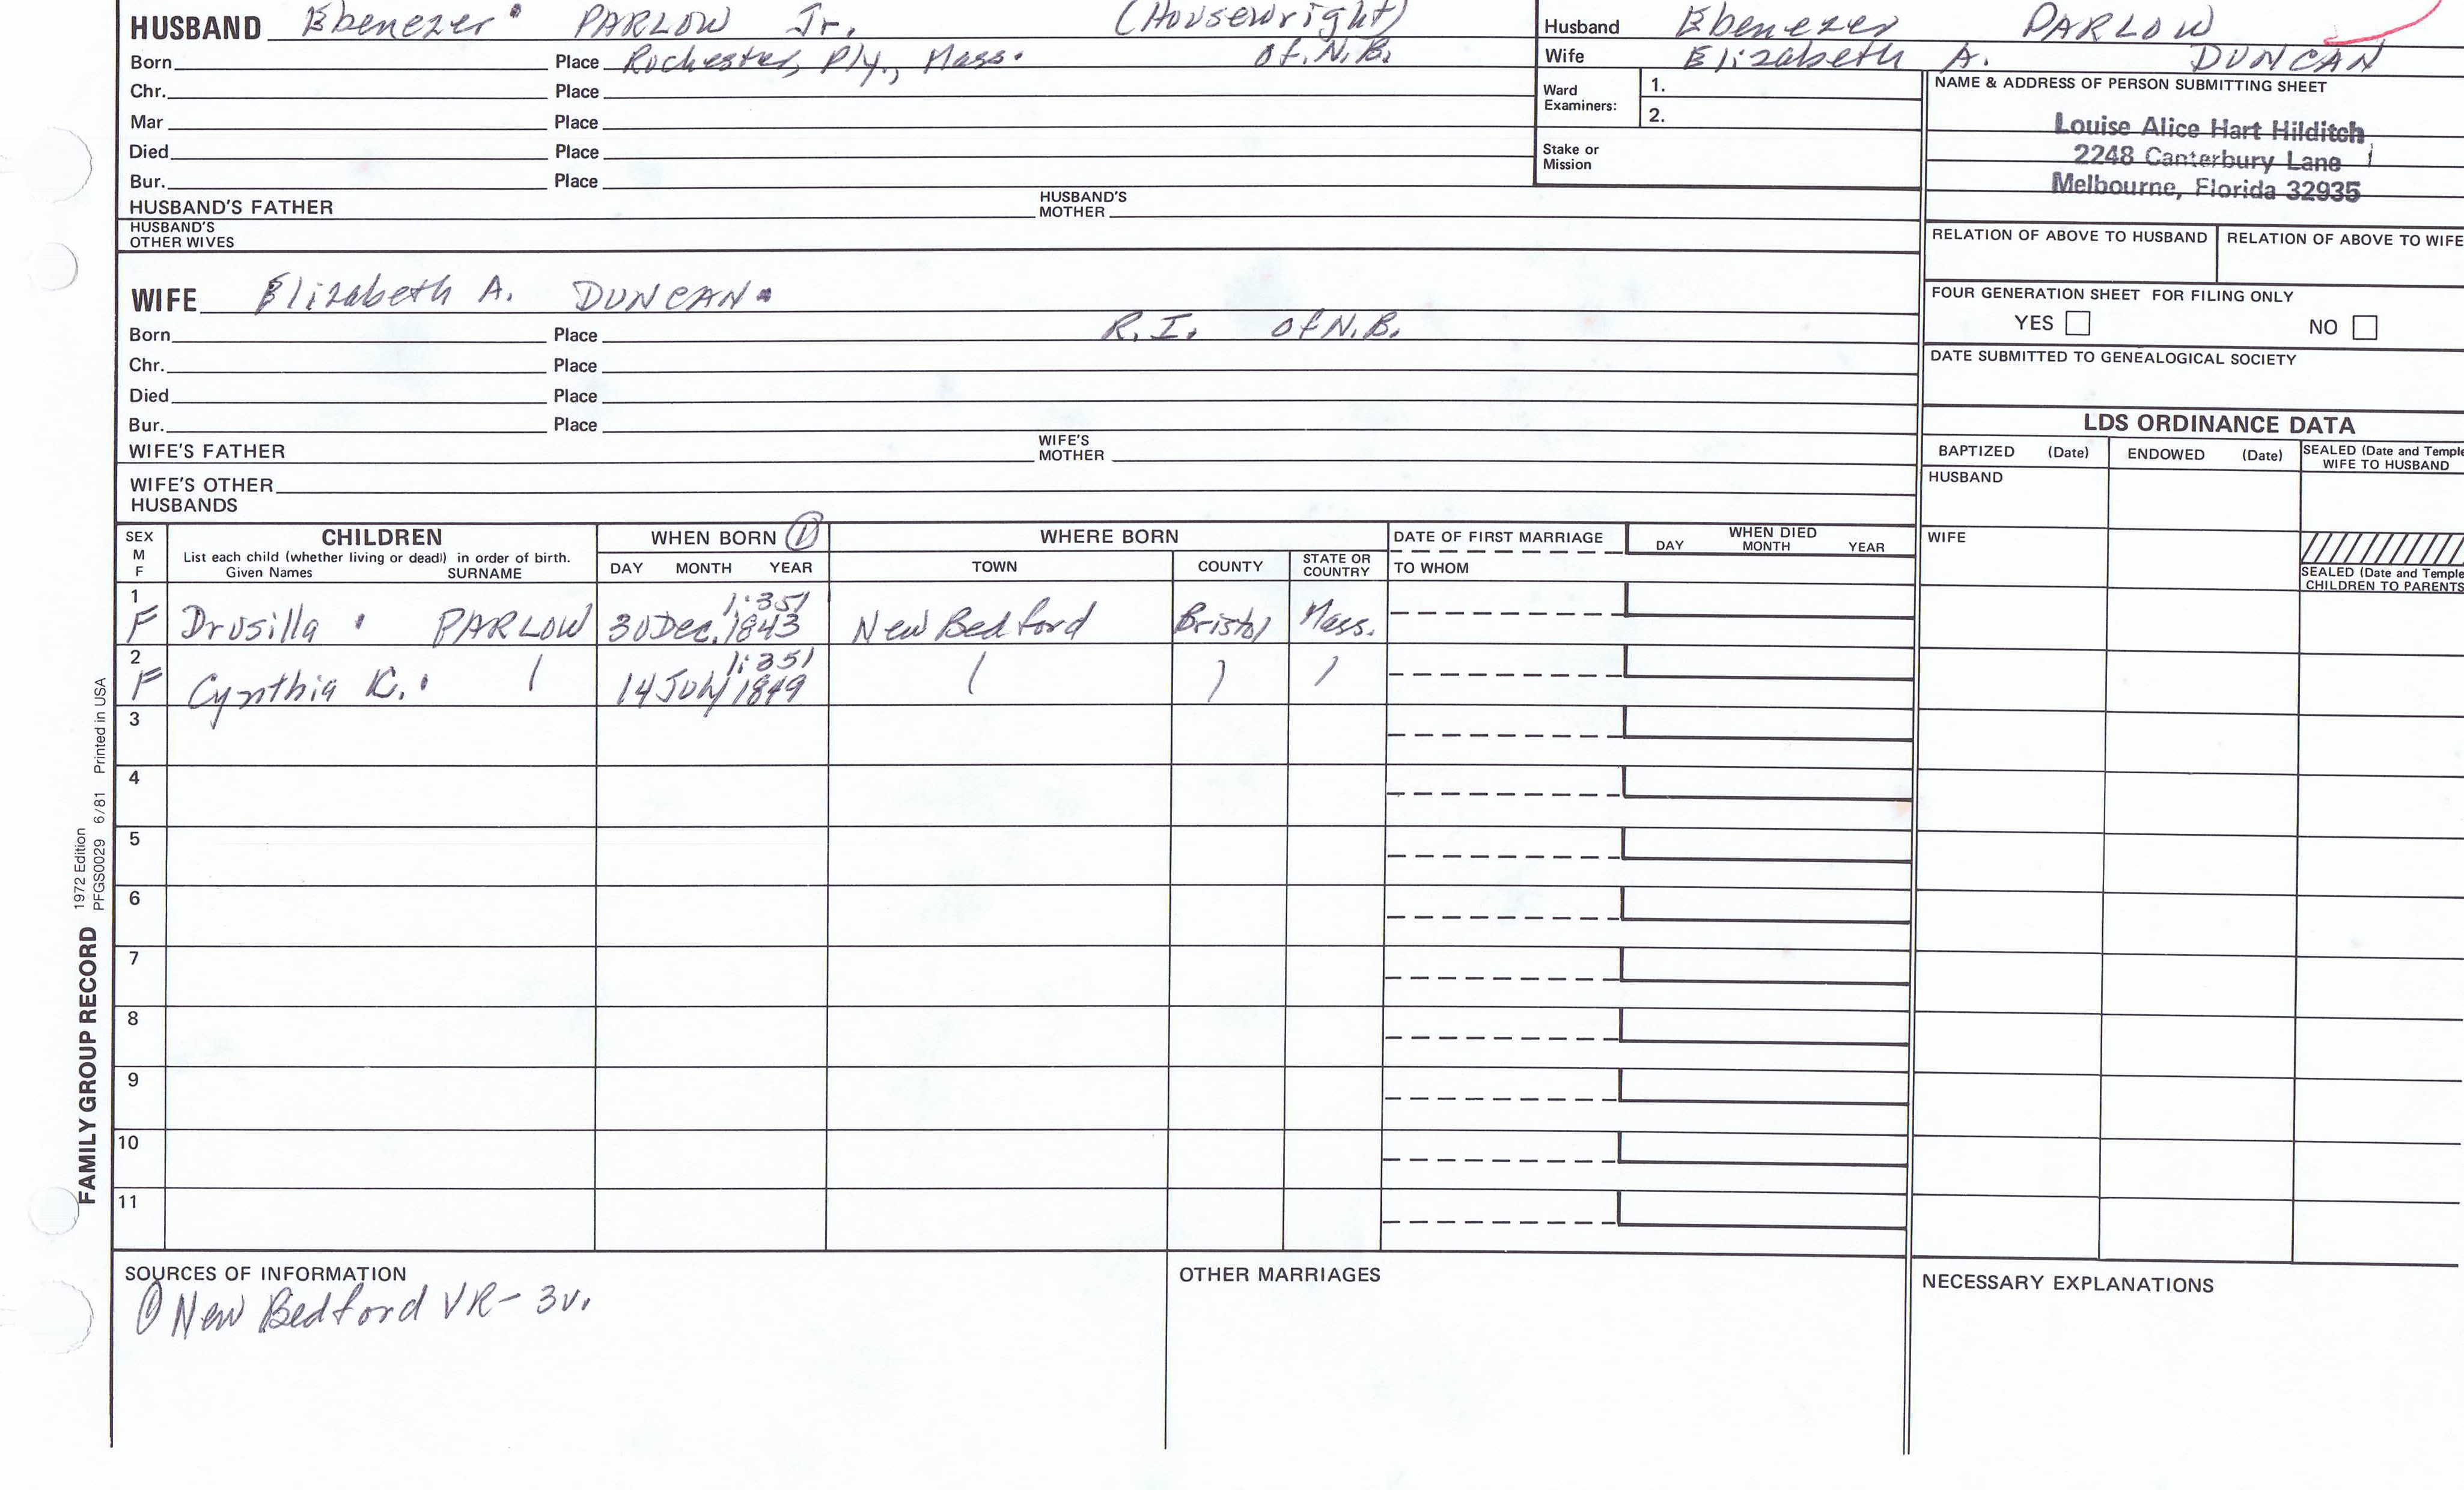 HUSBAND Ebenezer PARLOW Jr. (Housewright)
Born Place Rochester, Ply., Mass. of N.B.
Chr. Place
Mar Place
Died Place
Bur. Place
HUSBAND'S FATHER HUSBAND'S MOTHER
HUSBAND'S OTHER WIVES
Husband Ebenezer PARLOW
Wife Elizabeth A. DUNCAN
Ward Examiners: 1.
2.
Stake or Mission
NAME & ADDRESS OF PERSON SUBMITTING SHEET
Louise Alice Hart Hilditch
2248 Canterbury Lane
Melbourne, Florida 32935
RELATION OF ABOVE TO HUSBAND RELATION OF ABOVE TO WIFE
FOUR GENERATION SHEET FOR FILING ONLY
YES NO
DATE SUBMITTED TO GENEALOGICAL SOCIETY
WIFE Elizabeth A. DUNCAN
Born Place R.I. of N.B.
Chr. Place
Died Place
Bur. Place
WIFE'S FATHER WIFE'S MOTHER
WIFE'S OTHER HUSBANDS
LDS ORDINANCE DATA
BAPTIZED (Date) ENDOWED (Date) SEALED (Date and Temple
WIFE TO HUSBAND
HUSBAND
WIFE
SEALED (Date and Temple
CHILDREN TO PARENTS
SEX M F CHILDREN WHEN BORN ① WHERE BORN DATE OF FIRST MARRIAGE WHEN DIED
List each child (whether living or dead) in order of birth.
Given Names SURNAME DAY MONTH YEAR TOWN COUNTY STATE OR COUNTRY TO WHOM DAY MONTH YEAR
1 1:351
F Drusilla PARLOW 30 Dec. 1843 New Bedford Bristol Mass.
2 1:351
F Cynthia K. 14 July 1849
3
4
5
6
7
8
9
10
11
SOURCES OF INFORMATION OTHER MARRIAGES NECESSARY EXPLANATIONS
① New Bedford VR- 3v.
FAMILY GROUP RECORD 1972 Edition
PFGS0029 6/81 Printed in USA